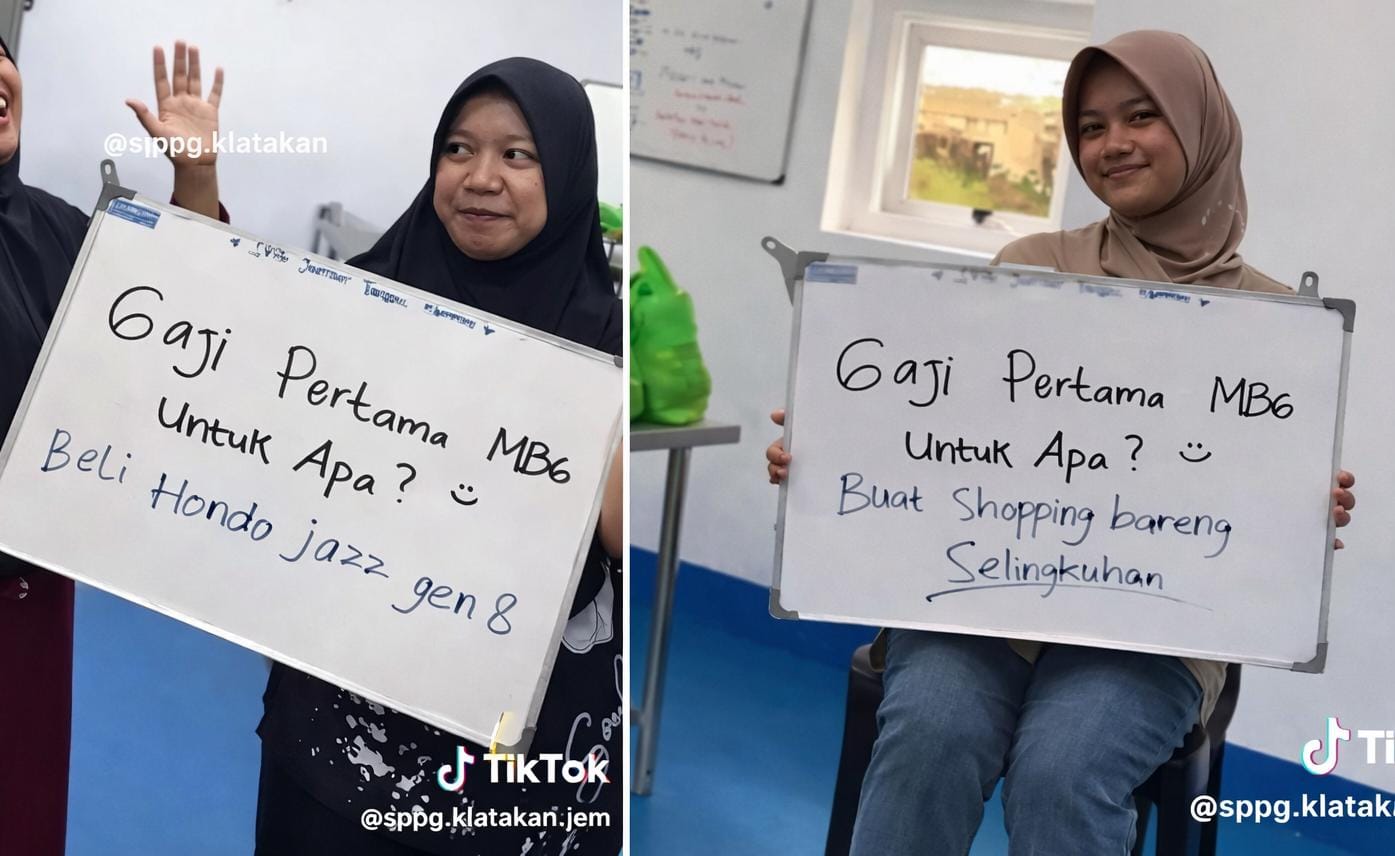 @sppg.klatakan
Gaji Pertama MBG
Untuk Apa? :)
Beli Hondo jazz gen 8
TikTok
@sppg.klatakan.jem
Gaji Pertama MBG
Untuk Apa? :)
Buat Shopping bareng
Selingkuhan
Ti
@sppg.klatak